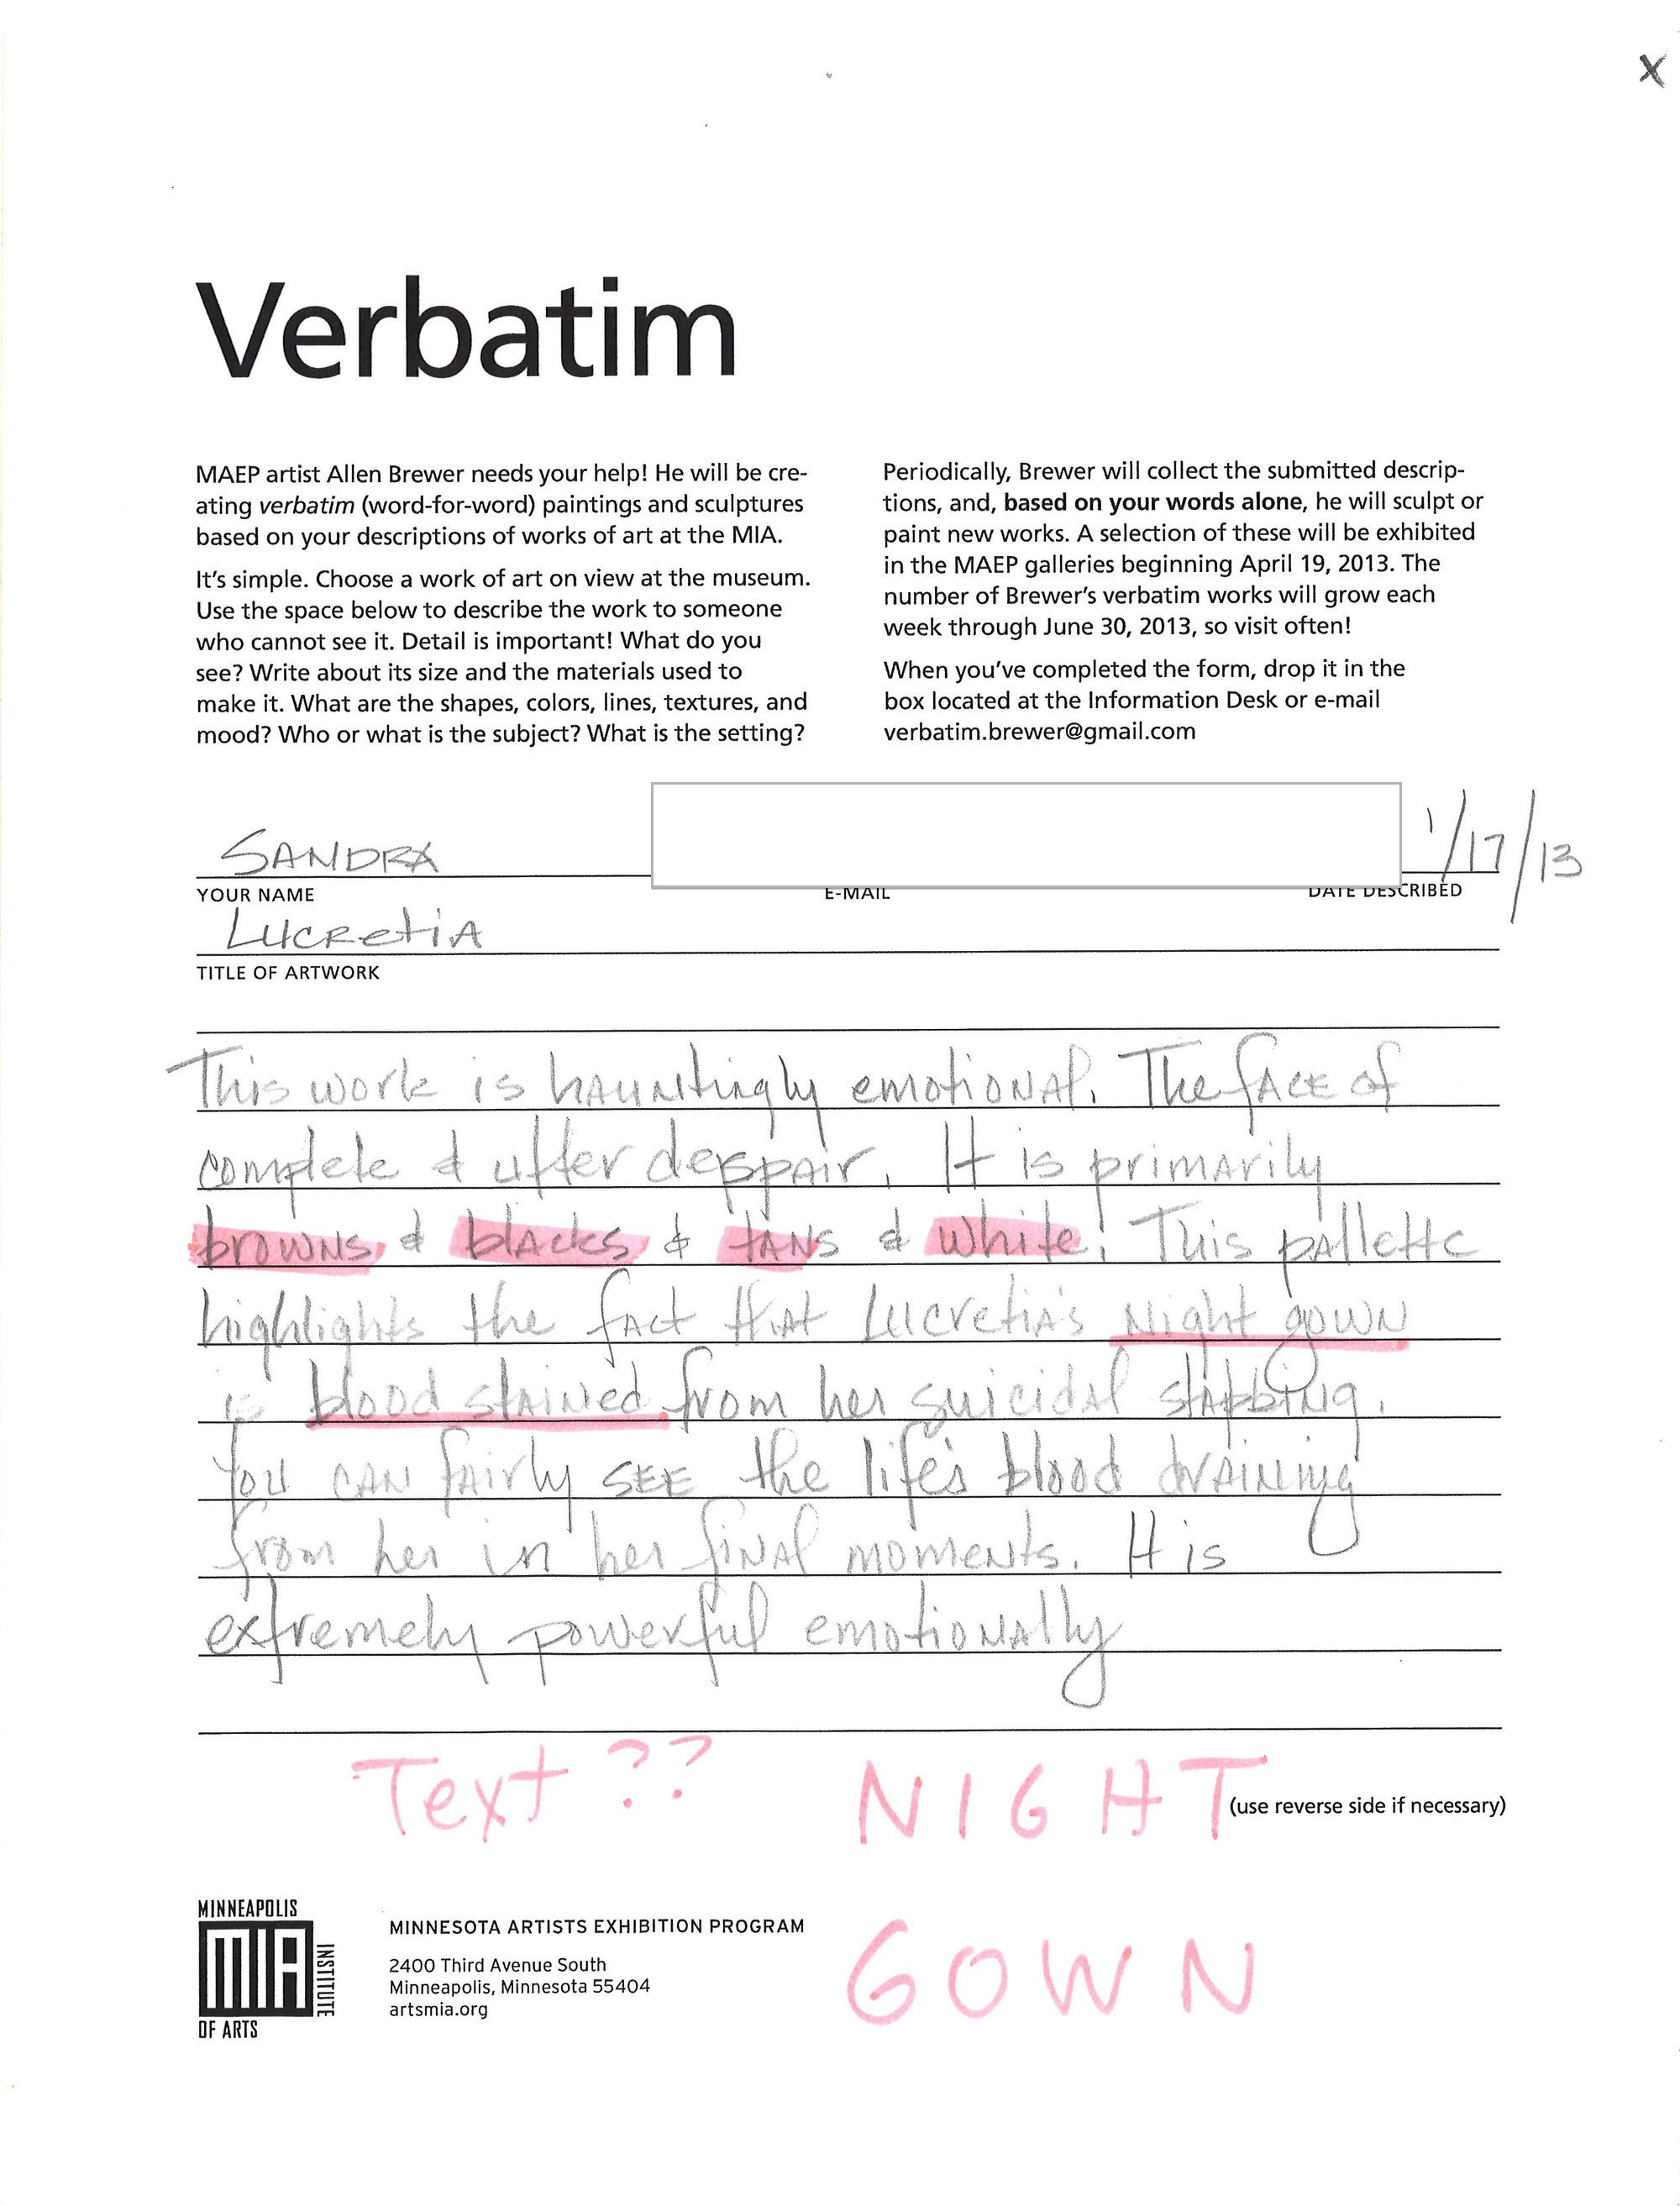 X
Verbatim
MAEP artist Allen Brewer needs your help! He will be cre-
ating verbatim (word-for-word) paintings and sculptures
based on your descriptions of works of art at the MIA.
It's simple. Choose a work of art on view at the museum.
Use the space below to describe the work to someone
who cannot see it. Detail is important! What do you
see? Write about its size and the materials used to
make it. What are the shapes, colors, lines, textures, and
mood? Who or what is the subject? What is the setting?
Periodically, Brewer will collect the submitted descrip-
tions, and, based on your words alone, he will sculpt or
paint new works. A selection of these will be exhibited
in the MAEP galleries beginning April 19, 2013. The
number of Brewer's verbatim works will grow each
week through June 30, 2013, so visit often!
When you've completed the form, drop it in the
box located at the Information Desk or e-mail
verbatim.brewer@gmail.com
SANDRA 1/17/13
YOUR NAME E-MAIL DATE DESCRIBED
Lucretia
TITLE OF ARTWORK
This work is hauntingly emotional. The face of
complete & utter despair. It is primarily
browns & blacks & tans & white! This pallette
highlights the fact that Lucretia's Night gown
is blood stained from her suicidal stabbing.
You can fairly see the life's blood draining
from her in her final moments. It is
extremely powerful emotionally
Text ?? NIGHT
(use reverse side if necessary)
GOWN
MINNEAPOLIS
MIA
INSTITUTE
OF ARTS
MINNESOTA ARTISTS EXHIBITION PROGRAM
2400 Third Avenue South
Minneapolis, Minnesota 55404
artsmia.org